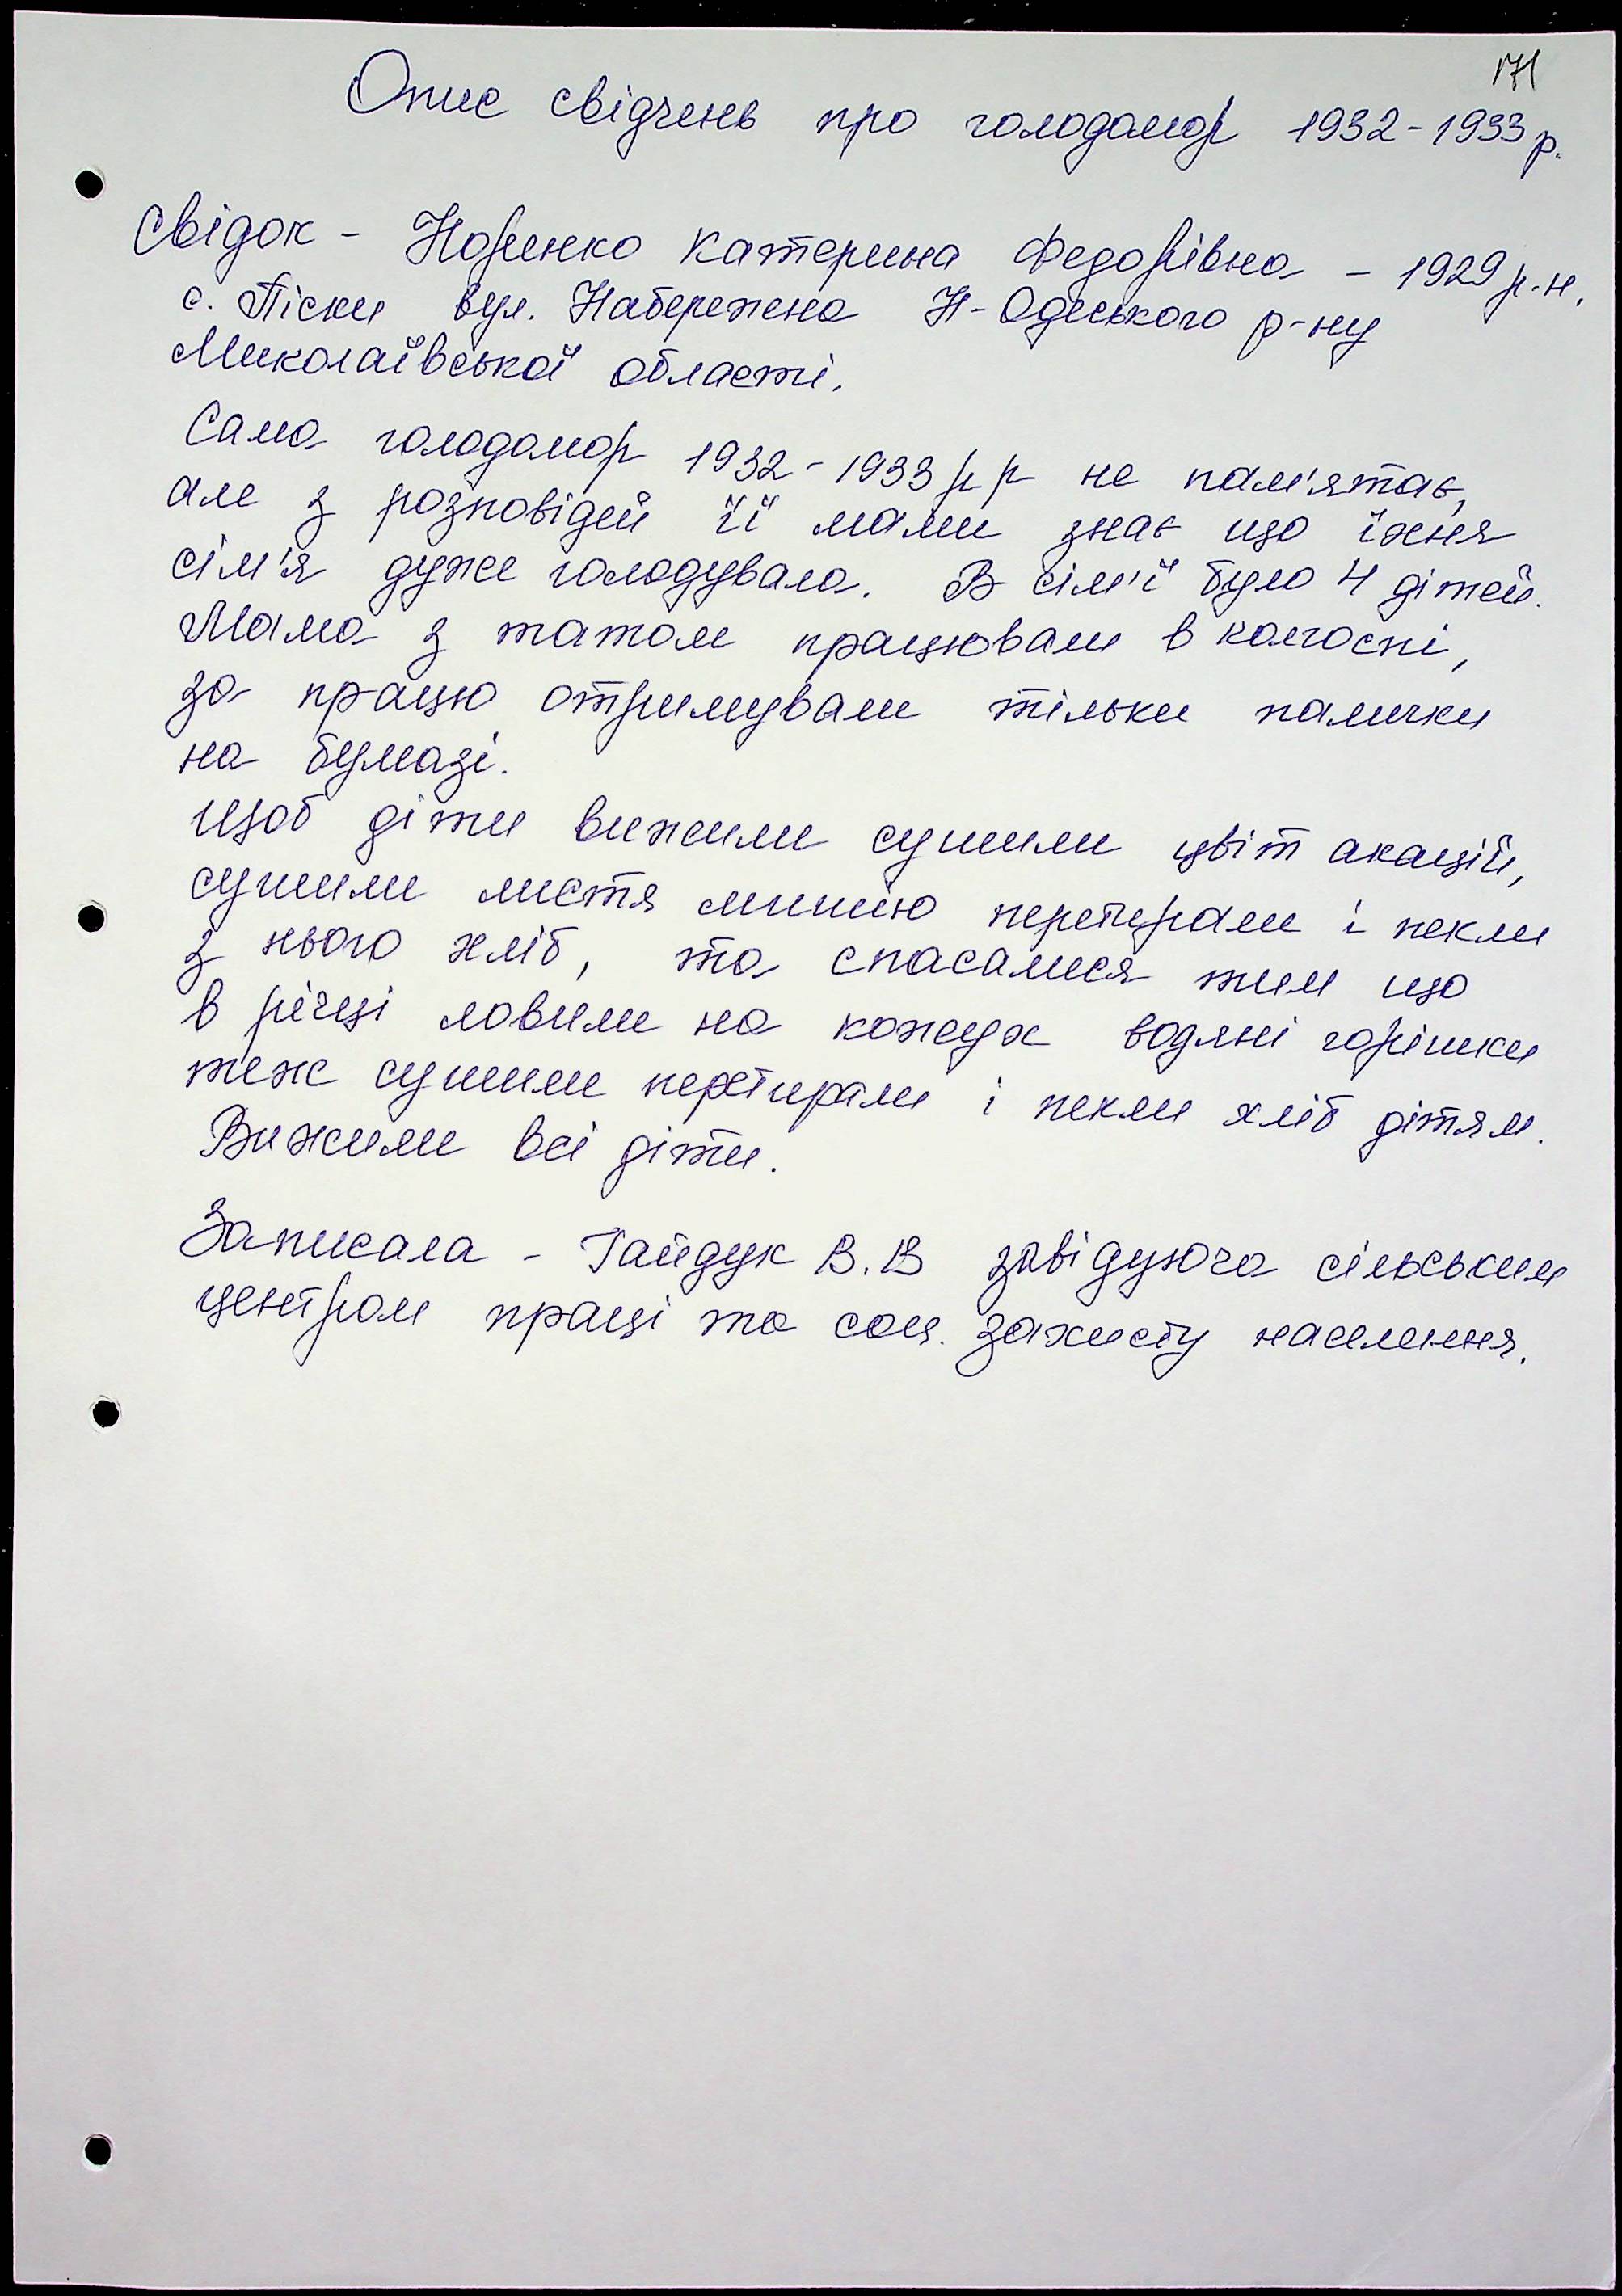 171
Опис свідчень про голодомор 1932-1933 р.
Свідок - Норенко Катерина Федорівна - 1929 р.н.
с. Піски вул. Набережна Н-Одеського р-ну
Миколаївської області.
Сама голодомор 1932-1933 рр не пам'ятає,
але з розповідей її мами знає що їхня
сім'я дуже голодувала. В сім'ї було 4 дітей.
Мама з татом працювали в колгоспі,
за працю отримували тільки палички
на бумазі.
Щоб діти вижили сушили цвіт акацій,
сушили листя перетирали і пекли
з нього хліб, та спасалися тим що
в річці ловили на кожух водяні горішки
теж сушили перетирали і пекли хліб дітям.
Вижили всі діти.
Записала - Гайдук В.В завідуюча сільським
центром праці та соц. захисту населення.